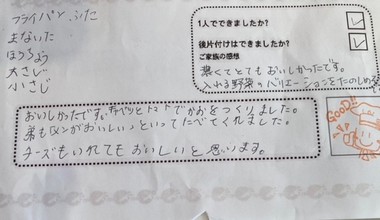 フライパン ふた
まないた
ほうちょう
大さじ
小さじ
1人でできましたか?
後片付けはできましたか?
ご家族の感想
とてもおいしかったです。
入れる野菜のバリエーションをたのしめ
おいしかったです。キャベツとトマトでかおをつくりました。
弟もおいしいっといってたべてくれました。
チーズもいれてもおいしいと思います。
GOOD!!